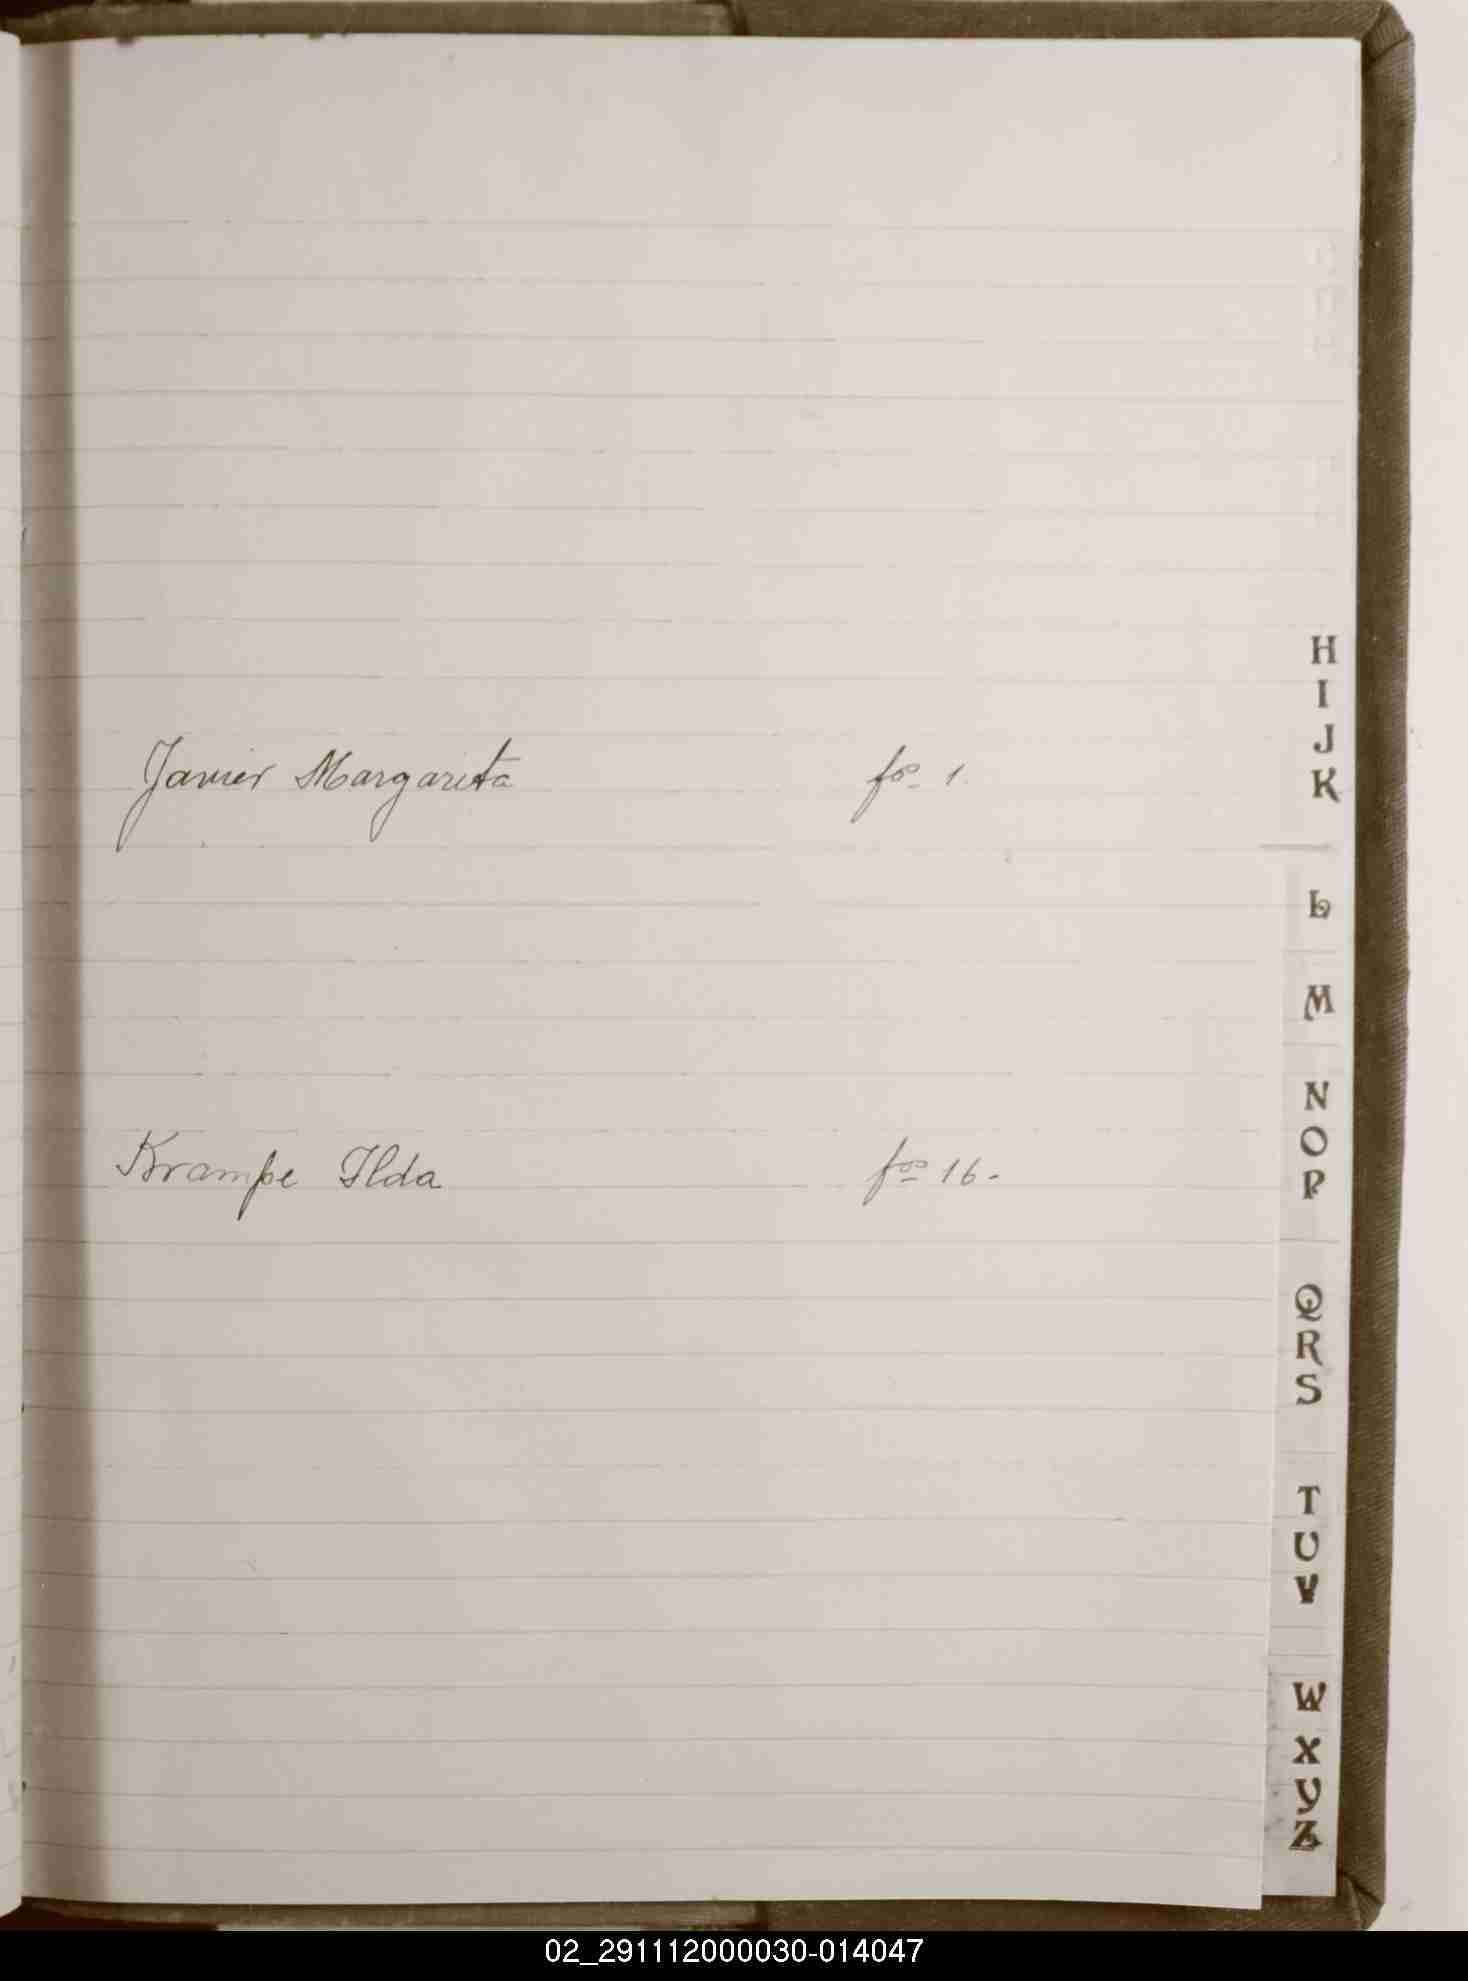 Javier Margarita fos 1.
Krampe Ilda fos 16.-
H
I
J
K
L
M
N
O
P
Q
R
S
T
U
V
W
X
Y
Z
02_291112000030-014047